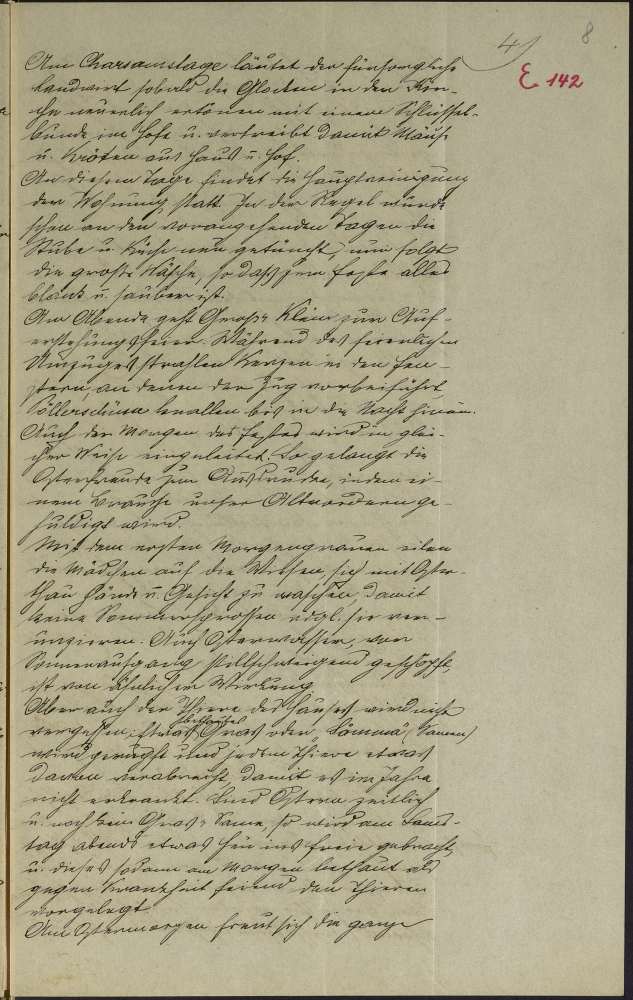 4
8
E 142
Am Charsamstage läutet der fürsorgliche
Landwirt sobald die Glocken in der Kir-
che neuerlich ertönen mit einem Schlüssel-
bunde im Hofe u. vertreibt damit Mäuse
u. Kröten aus Haus u. Hof.
An diesem Tage findet die Hauptreinigung
der Wohnung statt. In der Regel wurde
schon an den vorangehenden Tagen die
Stube u. Küche neu getüncht, nun folgt
die große Wäsche, so daß zum Feste alles
blank u. sauber ist.
Am Abende geht Groß u. Klein zur Auf-
erstehungsfeier. Während des feierlichen
Umzuges strahlen Kerzen in den Fen-
stern, an denen der Zug vorbeiführt.
Böllerschüsse knallen bis in die Nacht hinein.
Auch der Morgen des Festes wird in glei-
cher Weise eingeleitet. So gelangt die
Osterfreude zum Ausdrucke, indem ei-
nem Brauche unser Altvordern ge-
huldigt wird.
Mit dem ersten Morgengrauen eilen
die Mädchen auf die Wiesen sich mit Oster-
thau Hände u. Gesicht zu waschen, damit
keine Sommersprossen udgl. sie ver-
unzieren. Auch Osterwasser, vor
Sonnenaufgang stillschweigend geschöpft,
ist von ähnlicher Wirkung.
Aber auch der Thiere des Hauses wird nicht
vergessen; Etwas Gras oder "Somma" (Samen)
wird gemacht und jedem Thiere etwas
davon verabreicht damit es im Jahre
nicht erkrankt. Sind Ostern zeitlich
u. noch kein Gras u. Same, so wird am Sams-
tag abends etwas Heu ins freie gebracht,
u. dieses sodann am Morgen bethaut als
gegen Krankheit feiend den Thieren
vorgelegt.
Am Ostermorgen freut sich die ganze